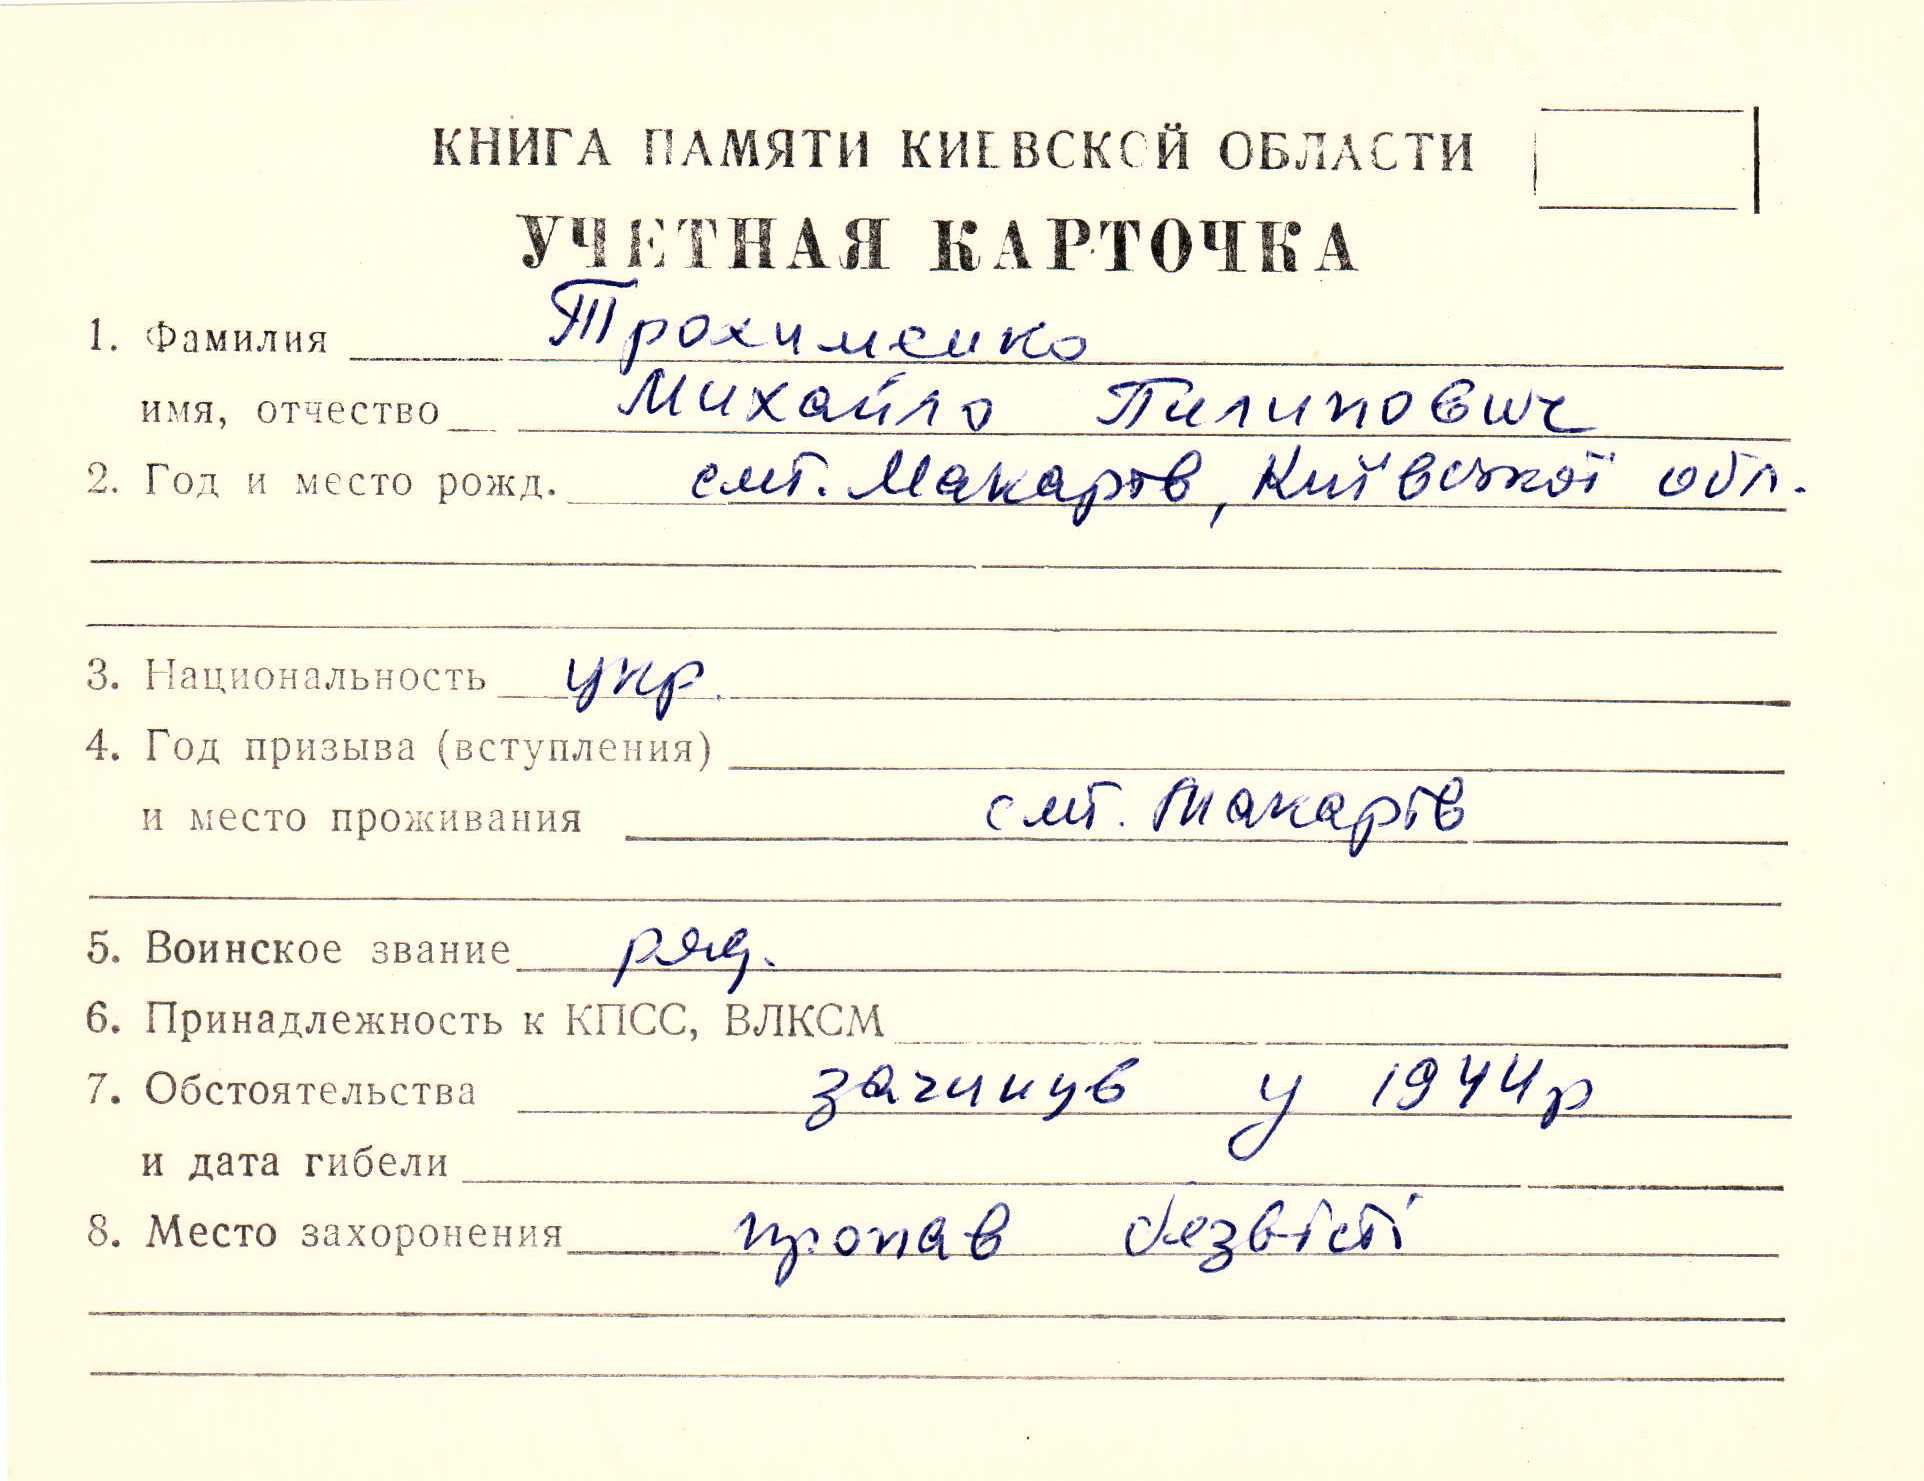 КНИГА ПАМЯТИ КИЕВСКОЙ ОБЛАСТИ
УЧЕТНАЯ КАРТОЧКА
1. Фамилия Трохименко
имя, отчество Михайло Пилипович
2. Год и место рожд. смт. Макарів, Київської обл.
3. Национальность укр.
4. Год призыва (вступления)
и место проживания смт. Макарів
5. Воинское звание ряд.
6. Принадлежность к КПСС, ВЛКСМ
7. Обстоятельства загинув у 1944р
и дата гибели
8. Место захоронения пропав безвісті